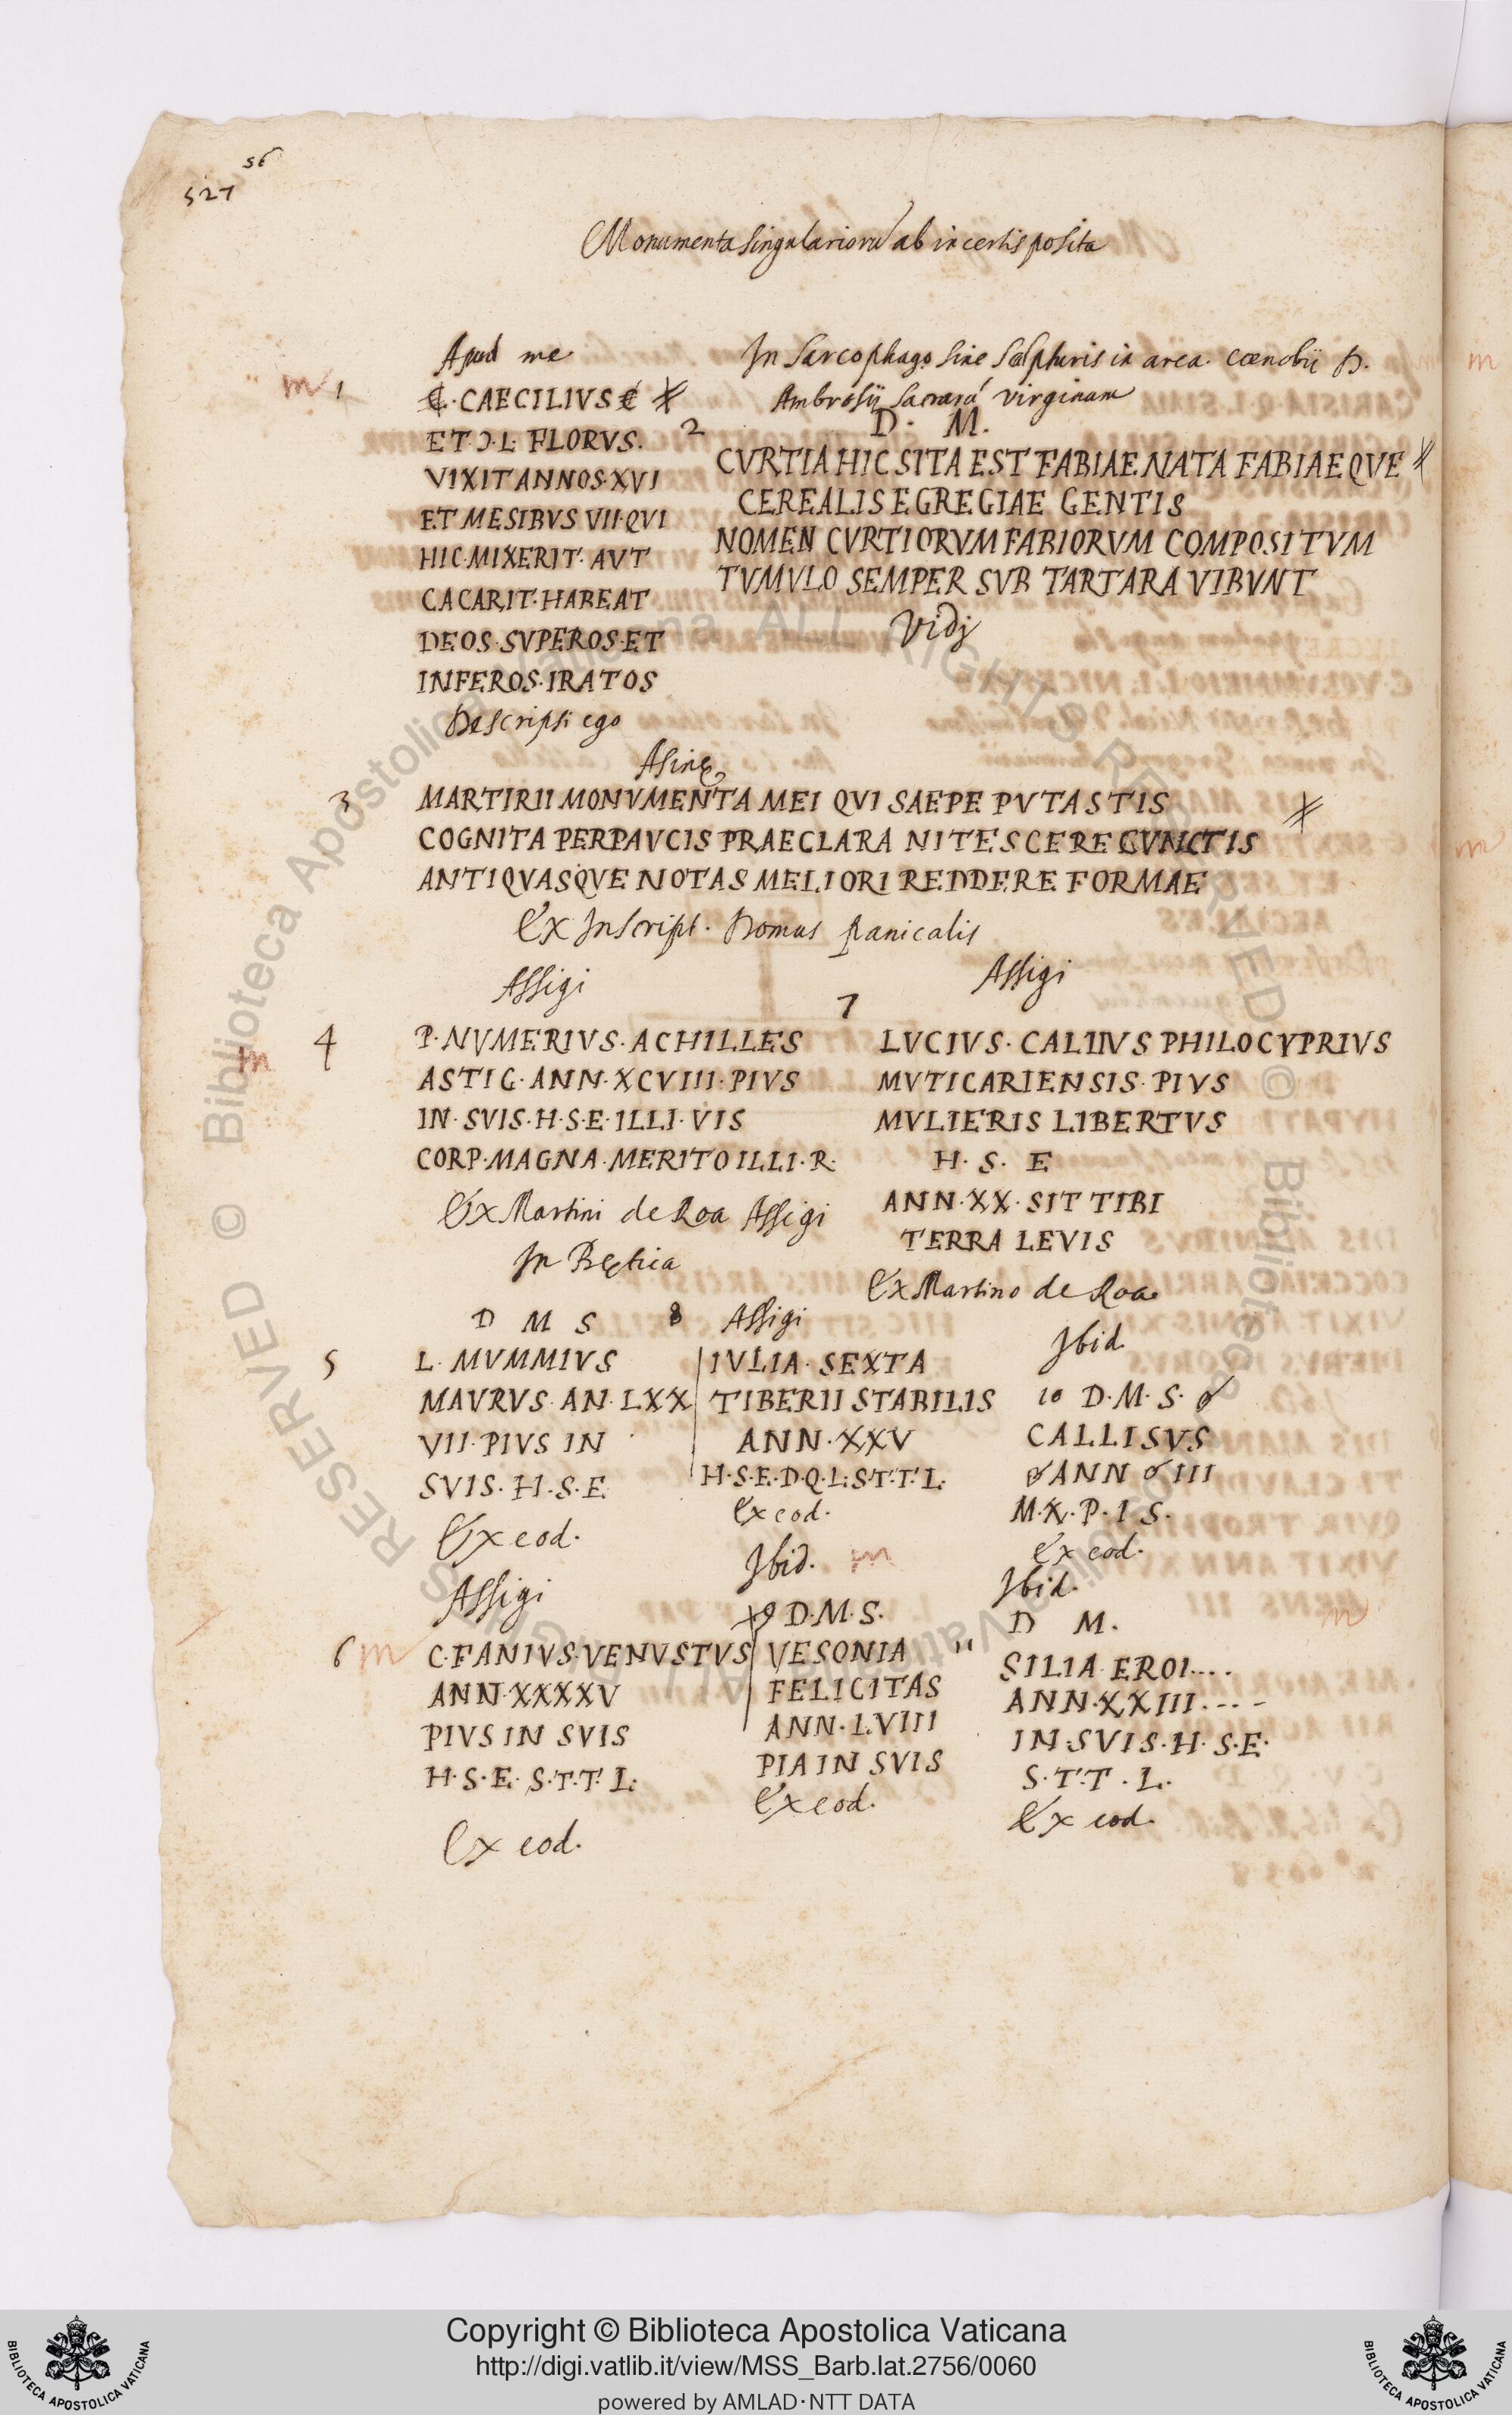 56
527
Monumenta singulariorū ab incertis posita
Apud me
m 1 C. CAECILIVS C
ET·Ɔ·L· FLORVS.
VIXIT ANNOS·XVI
ET MESIBVS VII·QVI
HIC·MIXERIT·AVT
CACARIT·HABEAT
DEOS·SVPEROS·ET
INFEROS·IRATOS
Descripsi ego
In Sarcophago sine Scalpturis in area coenobij D.
Ambrosij sacrarū virginum
2 D. M.
CVRTIA HIC SITA EST FABIAE NATA FABIAEQVE
CEREALIS EGREGIAE GENTIS
NOMEN CVRTIORVM FABIORVM COMPOSITVM
TVMVLO SEMPER SVB TARTARA VIBVNT
Vidj
3 MARTIRII MONVMENTA MEI QVI SAEPE PVTASTIS
COGNITA PERPAVCIS PRAECLARA NITESCERE CVNCTIS
ANTIQVASQVE NOTAS MELIORI REDDERE FORMAE
Ex Inscript. Domus panicalis
Assigi
m 4 P·NVMERIVS·ACHILLES
ASTIG·ANN·XCVIII·PIVS
IN·SVIS·H·S·E·ILLI·VIS
CORP·MAGNA·MERITO ILLI·R·
Ex Martini de Roa Assigi
In Bętica
Assigi
7 LVCIVS·CALIIVS PHILOCYPRIVS
MVTICARIENSIS·PIVS
MVLIERIS LIBERTVS
H. S. E
ANN·XX·SIT TIBI
TERRA LEVIS
Ex Martino de Roa
D M S
5 L. MVMMIVS
MAVRVS·AN·LXX
VII·PIVS IN
SVIS·H·S·E
Ex eod.
8 Assigi
IVLIA·SEXTA
TIBERII STABILIS
ANN·XXV
H·S·E·D·Q·L·S·T·T·L·
Ex eod.
Ibid
10 D·M·S·
CALLISVS
ANN III
M·X·P·I S·
Ex eod.
Assigi
6 m C·FANIVS·VENVSTVS
ANN·XXXXV
PIVS IN SVIS
H·S·E· S·T·T·L·
Ex eod.
Ibid. m
9 D·M·S·
VESONIA
FELICITAS
ANN·LVIII
PIA IN SVIS
Ex eod.
Ibid.
D M. m
11 SILIA EROI....
ANN·XXIII·---
IN·SVIS·H·S·E·
S·T·T·L.
Ex eod.
m
m
RESERVED © Biblioteca Apostolica Vaticana ALL RIGHTS RESERVED © Biblioteca Apostolica Vaticana ALL RIGHTS
Copyright © Biblioteca Apostolica Vaticana
http://digi.vatlib.it/view/MSS_Barb.lat.2756/0060
powered by AMLAD·NTT DATA
BIBLIOTECA APOSTOLICA VATICANA
BIBLIOTECA APOSTOLICA VATICANA